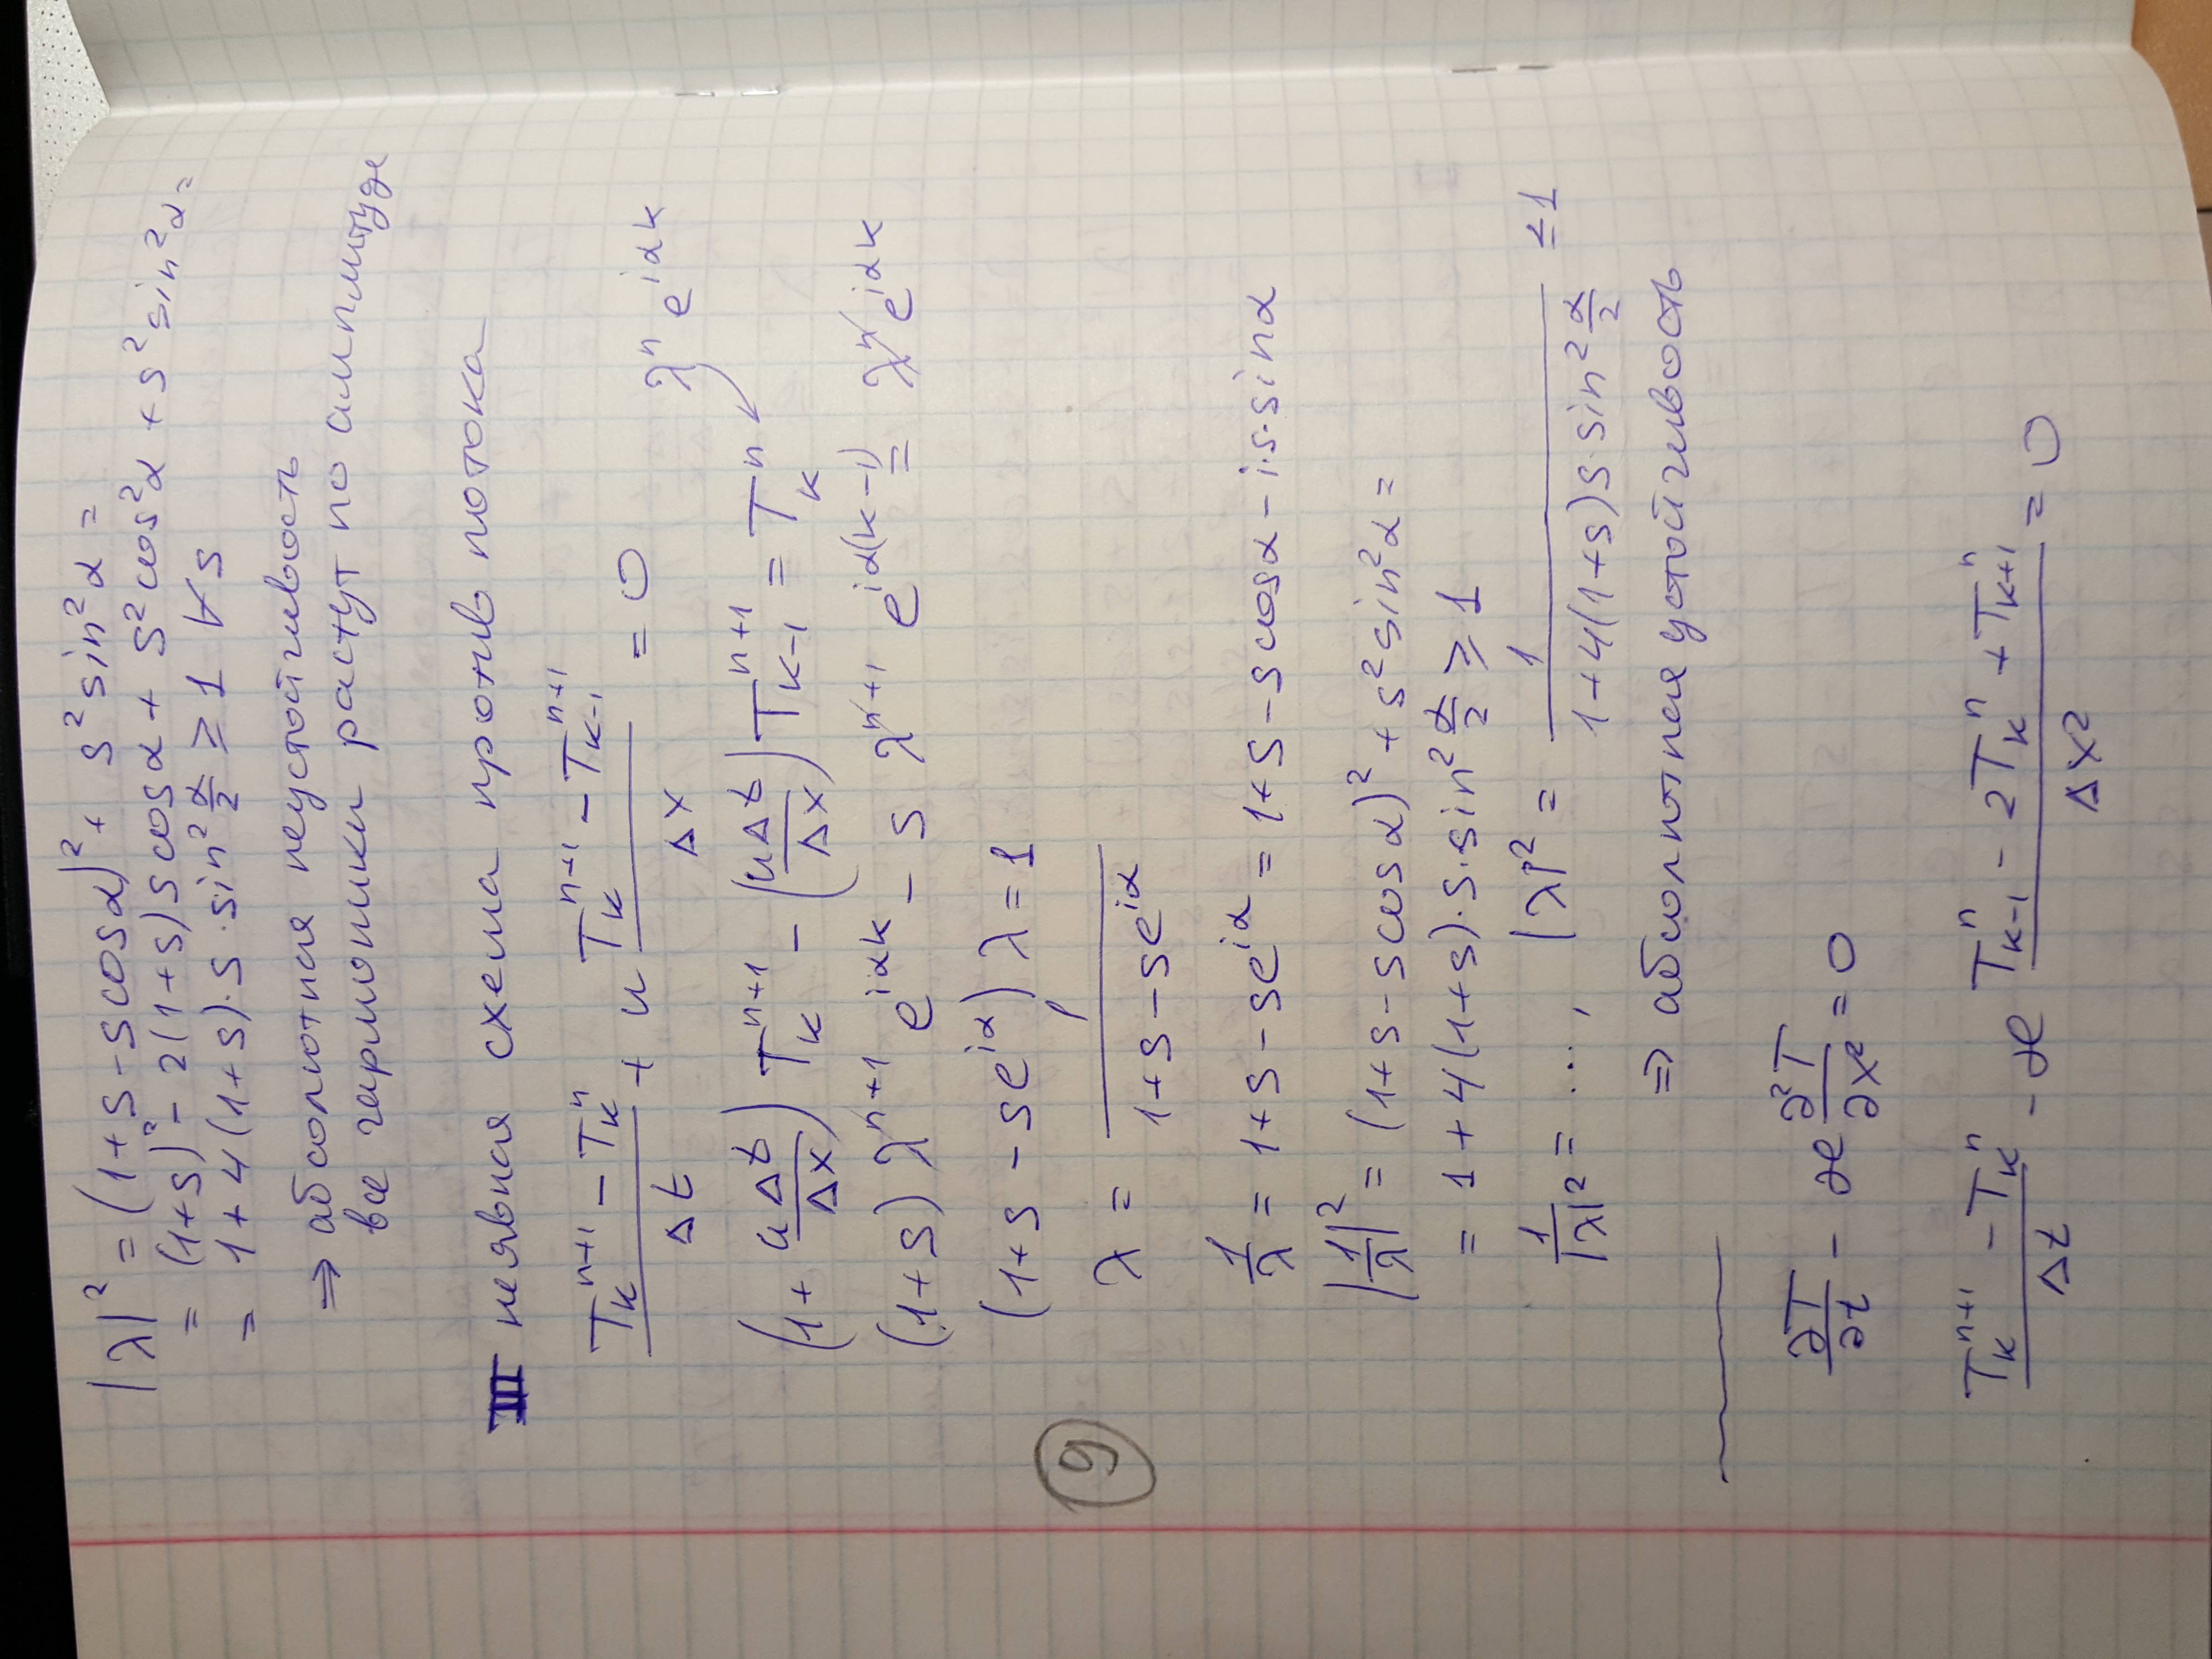 |λ|² = (1+s-s cosα)² + s² sin²α =
= (1+s)² - 2(1+s)s cosα + s² cos²α + s² sin²α =
= 1 + 4(1+s)·s·sin² α/2 ≥ 1 ∀s
⇒ абсолютная неустойчивость
все гармоники растут по амплитуде
III неявная схема против потока
(T_k^{n+1} - T_k^n)/Δt + u (T_k^{n+1} - T_{k-1}^{n+1})/Δx = 0
λ^n e^{iαk}
(1 + uΔt/Δx) T_k^{n+1} - (uΔt/Δx) T_{k-1}^{n+1} = T_k^n
(1+s) λ^{n+1} e^{iαk} - s λ^{n+1} e^{iα(k-1)} = λ^n e^{iαk}
(1+s - se^{iα}) λ = 1
9
λ = 1/(1+s-se^{iα})
1/λ = 1+s-se^{iα} = 1+s-s cosα - i·s·sinα
|1/λ|² = (1+s-s cosα)² + s² sin²α =
= 1 + 4(1+s)·s·sin² α/2 ≥ 1
1/|λ|² = ..., |λ|² = 1/(1+4(1+s)s·sin² α/2) ≤ 1
⇒ абсолютная устойчивость
∂T/∂t - æ ∂²T/∂x² = 0
(T_k^{n+1} - T_k^n)/Δt - æ (T_{k-1}^n - 2T_k^n + T_{k+1}^n)/Δx² = 0